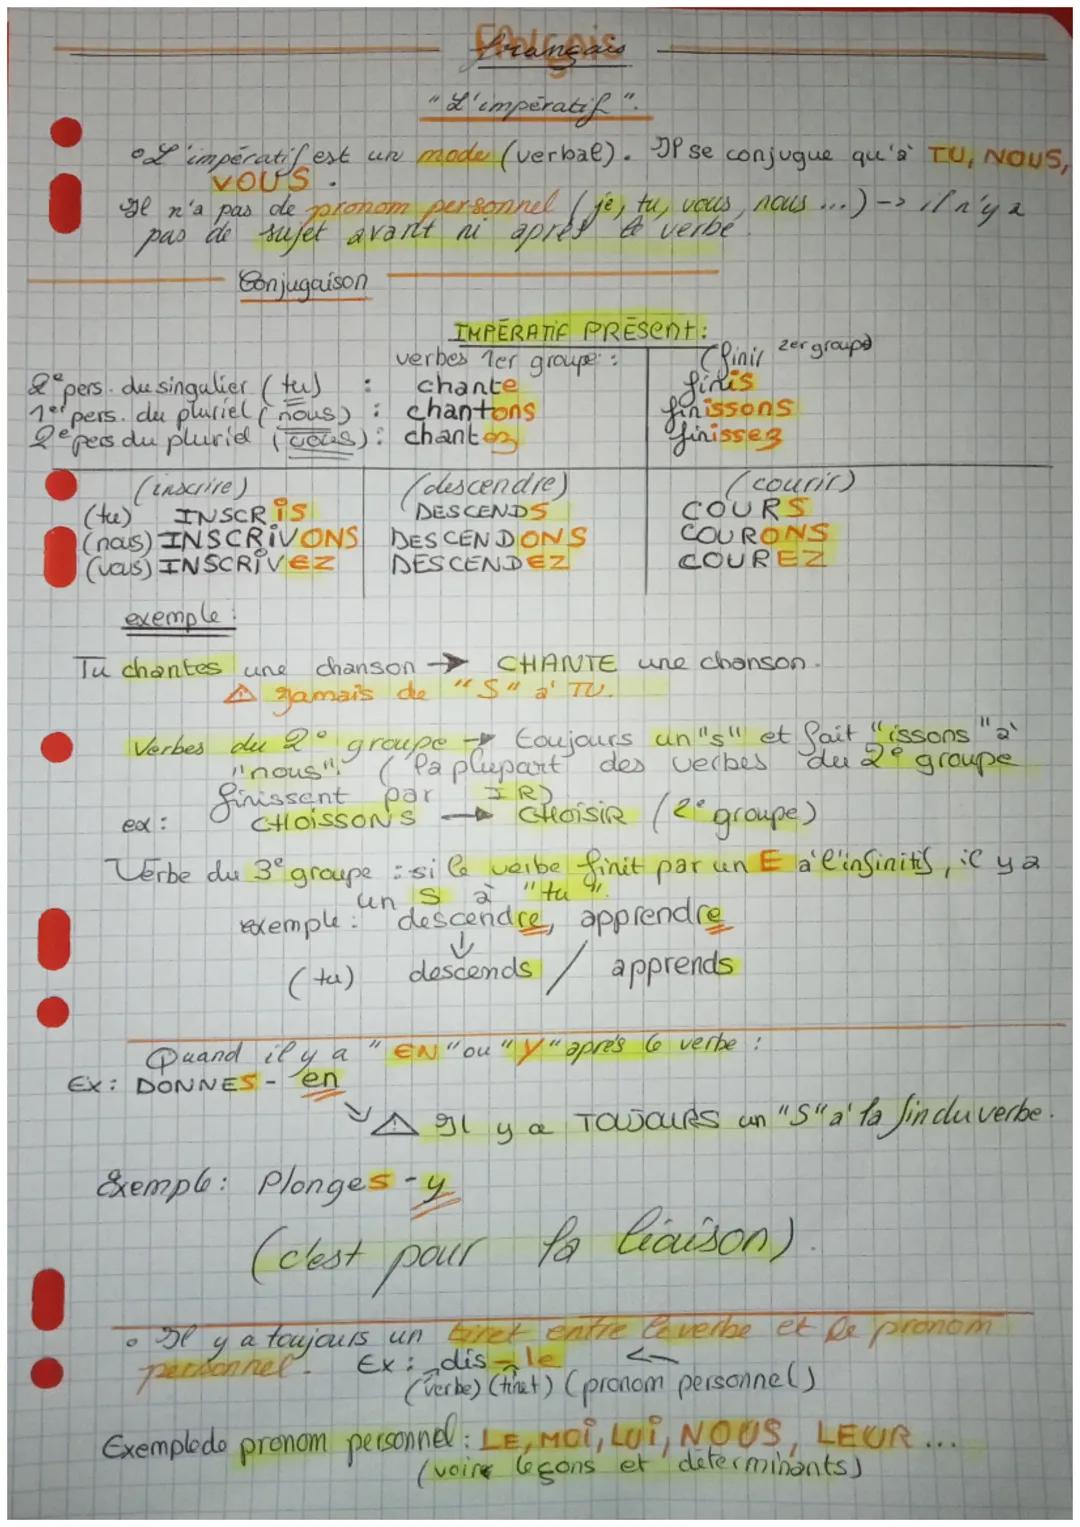 français
"L'impératif".
°L'impératif est un mode (verbal). Il se conjugue qu'à TU, NOUS,
VOUS.
Il n'a pas de pronom personnel (je, tu, vous, nous ...) -> il n'y a
pas de sujet avant ni après le verbe.
Conjugaison
IMPÉRATIF PRÉSENT:
verbes 1er groupe :
(finir 2er groupe)
2e pers. du singulier (tu) : chante finis
1er pers. du pluriel (nous) : chantons finissons
2e pers du pluriel (vous) : chantez finissez
(inscrire) (descendre) (courir)
(tu) INSCRIS DESCENDS COURS
(nous) INSCRIVONS DESCENDONS COURONS
(vous) INSCRIVEZ DESCENDEZ COUREZ
exemple :
Tu chantes une chanson → CHANTE une chanson.
⚠ Jamais de "S" à TU.
Verbes du 2° groupe → toujours un "s" et fait "issons" à
"nous". (la plupart des verbes du 2e groupe
finissent par IR)
ex : CHOISSONS → CHOISIR (2e groupe)
Verbe du 3e groupe : si le verbe finit par un E à l'infinitif, il y a
un S à "tu".
exemple : descendre, apprendre
↓
(tu) descends / apprends
Quand il y a "EN" ou "Y" après le verbe :
Ex : DONNES - en
⚠ Il y a TOUJOURS un "S" à la fin du verbe.
Exemple : Plonges - y
(c'est pour la liaison).
° Il y a toujours un tiret entre le verbe et le pronom
personnel. Ex : dis - le <-
(verbe) (tiret) (pronom personnel)
Exemple de pronom personnel : LE, MOI, LUI, NOUS, LEUR ...
(voire leçons et déterminants)